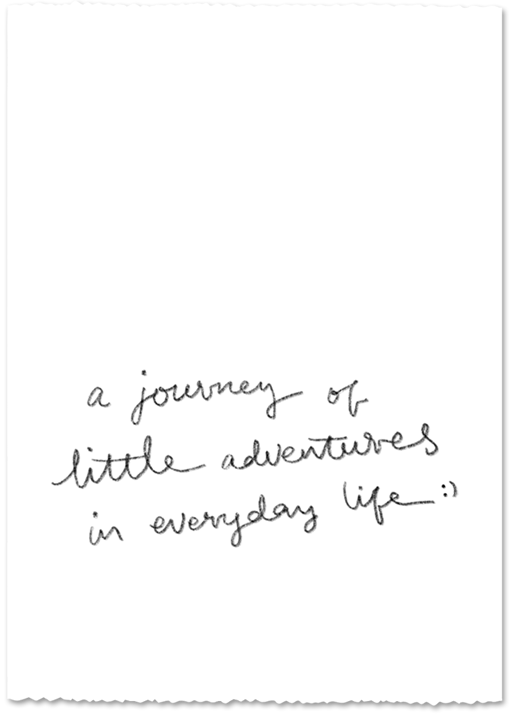 a journey of
little adventures
in everyday life :)